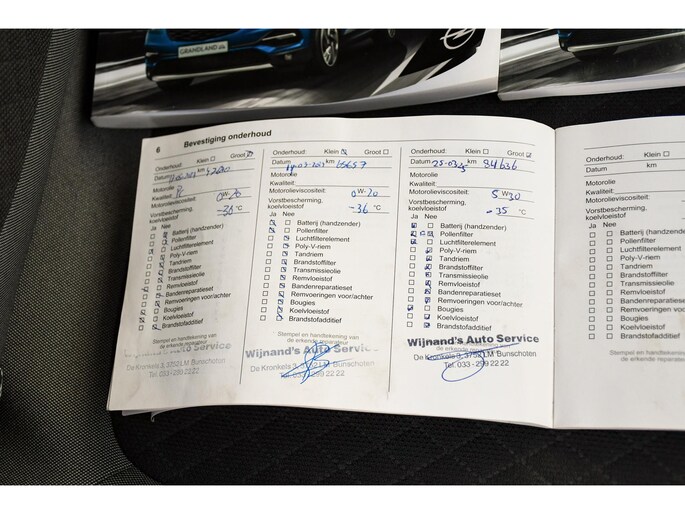 GRANDLAND
6 Bevestiging onderhoud
Onderhoud: Klein Groot
Datum km
Motorolie
Kwaliteit:
Motorolieviscositeit: 0W-20
Vorstbescherming, koelvloeistof °C
Ja Nee
Batterij (handzender)
Pollenfilter
Luchtfilterelement
Poly-V-riem
Tandriem
Brandstoffilter
Transmissieolie
Remvloeistof
Bandenreparatieset
Remvoeringen voor/achter
Bougies
Koelvloeistof
Brandstofadditief
Stempel en handtekening van
de erkende reparateur
Auto Service
De Kronkels 3, 3752 LM Bunschoten
Tel. 033 - 299 22 22
Onderhoud: Klein Groot
Datum km 65657
Motorolie
Kwaliteit:
Motorolieviscositeit: 0W-20
Vorstbescherming, koelvloeistof -36 °C
Ja Nee
Batterij (handzender)
Pollenfilter
Luchtfilterelement
Poly-V-riem
Tandriem
Brandstoffilter
Transmissieolie
Remvloeistof
Bandenreparatieset
Remvoeringen voor/achter
Bougies
Koelvloeistof
Brandstofadditief
Wijnand's Auto Service
De Kronkels 3, 3752 LM Bunschoten
Tel. 033 - 299 22 22
Onderhoud: Klein Groot
Datum 25-03-25 km 84636
Motorolie
Kwaliteit:
Motorolieviscositeit: 5W30
Vorstbescherming, koelvloeistof -35 °C
Ja Nee
Batterij (handzender)
Pollenfilter
Luchtfilterelement
Poly-V-riem
Tandriem
Brandstoffilter
Transmissieolie
Remvloeistof
Bandenreparatieset
Remvoeringen voor/achter
Bougies
Koelvloeistof
Brandstofadditief
Wijnand's Auto Service
de erkende reparateur
De Kronkels 3, 3752 LM Bunschoten
Tel. 033 - 299 22 22
Onderhoud: Klein
Datum km
Motorolie
Kwaliteit:
Motorolieviscositeit:
Vorstbescherming,
koelvloeistof
Ja Nee
Batterij (handzender)
Pollenfilter
Luchtfilterelement
Poly-V-riem
Tandriem
Brandstoffilter
Transmissieolie
Remvloeistof
Bandenreparatieset
Remvoeringen voor
Bougies
Koelvloeistof
Brandstofadditief
Stempel en handtekening
de erkende reparateur